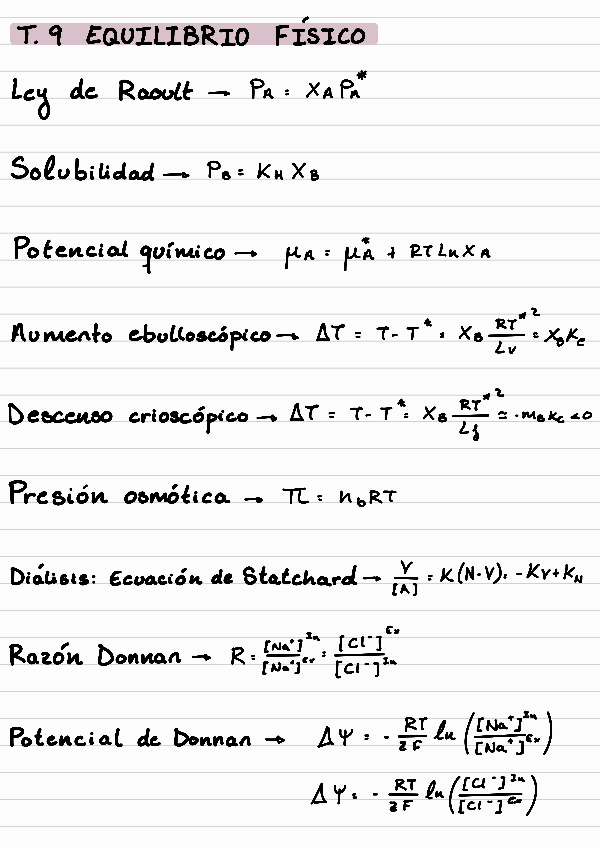 T. 9 EQUILIBRIO FÍSICO
Ley de Raoult → P_A = X_A P_A^*
Solubilidad → P_B = K_H X_B
Potencial químico → μ_A = μ_A^* + RT Ln X_A
Aumento ebulloscópico → ΔT = T - T^* = X_B RT^{*2}/L_v = X_B K_e
Descenso crioscópico → ΔT = T - T^* = X_B RT^{*2}/L_f ≃ -m_B K_C <0
Presión osmótica → π = n_b RT
Diálisis: Ecuación de Statchard → V/[A] = K(N-V) = -KV+KN
Razón Donnan → R = [Na⁺]^{In}/[Na⁺]^{Ex} = [Cl⁻]^{Ex}/[Cl⁻]^{In}
Potencial de Donnan → ΔΨ = - RT/zF ln ([Na⁺]^{In}/[Na⁺]^{Ex})
ΔΨ = - RT/zF ln ([Cl⁻]^{In}/[Cl⁻]^{Ex})